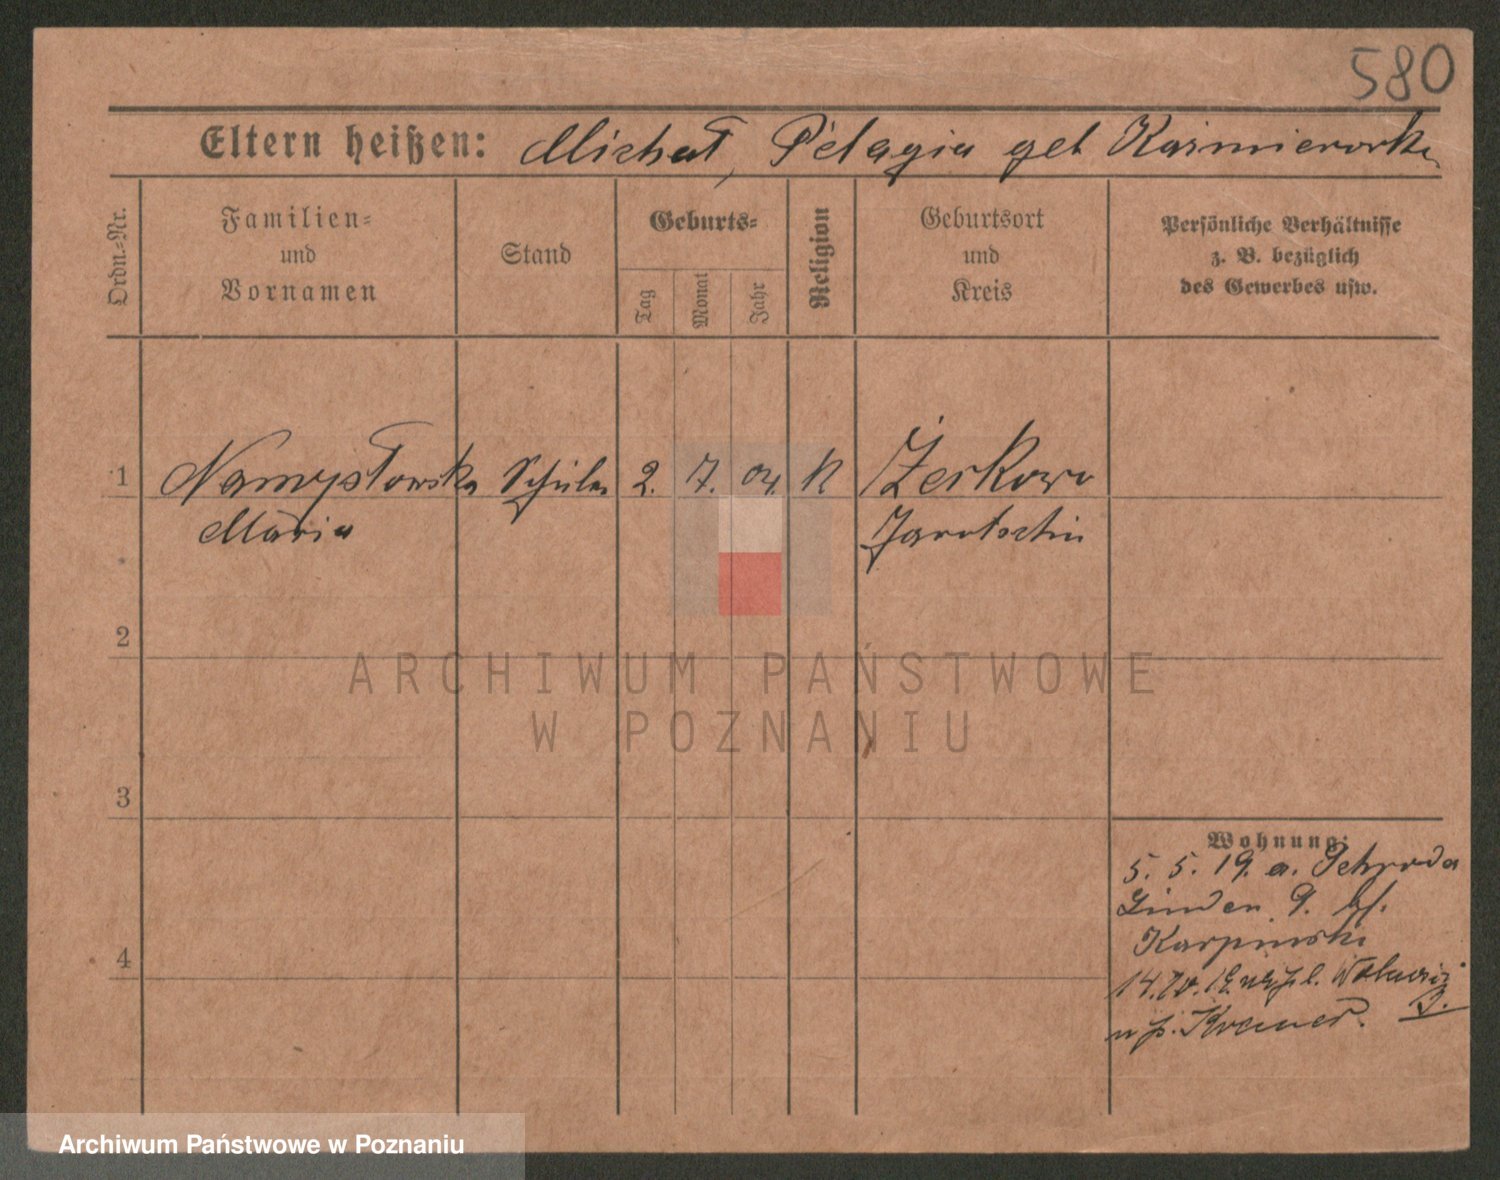 580
Eltern heißen: Michał, Pelagia geb Kaźmierowska
Ordn.-Nr.
Familien-
und
Vornamen
Stand
Geburts-
Tag
Monat
Jahr
Religion
Geburtsort
und
Kreis
Persönliche Verhältnisse
z. B. bezüglich
des Gewerbes usw.
1 Namysłowska Schüler 2. 7. 04. K Żerkowo
Maria Jarotschin
2
3
4
Wohnung:
5. 5. 19. a. Schroda
Linden 9. bf.
Karpinski
14. pl. Wolności
u p. Kramer.
ARCHIWUM PAŃSTWOWE
W POZNANIU
Archiwum Państwowe w Poznaniu